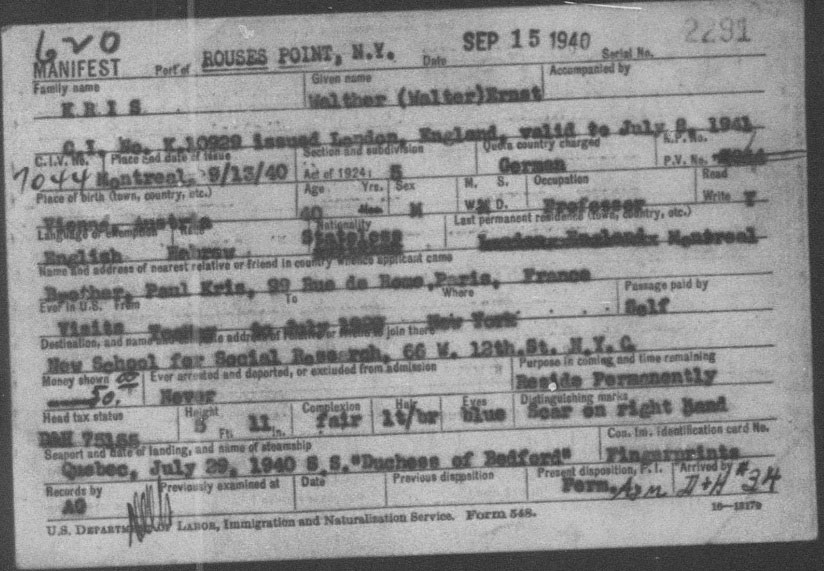 620
SEP 15 1940 2291
MANIFEST Port of ROUSES POINT, N.Y. Date Serial No.
Family name Given name Accompanied by
KRIS Walther (Walter)Ernst
C.I. No. K.10929 issued London, England, valid to July 2, 1941
C.I.V. No. Place and date of issue Section and subdivision Quota country charged R.P. No.
7044 Montreal, 9/13/40 Act of 1924: 5 German P.V. No.
Place of birth (town, country, etc.) Age Yrs. Sex M. S. Occupation Read
40 M W. D. Professor Write Y
Vienna Austria
Language or exemption Nationality Last permanent residence (town, country, etc.)
English Hebrew Stateless London England: Montreal
Name and address of nearest relative or friend in country whence applicant came
Brother, Paul Kris, 99 Rue de Rome, Paris, France
Ever in U.S. From To Where Passage paid by
Visits to July New York Self
Destination, and name and complete address of relative or friend to join there
New School for Social Research, 66 W. 12th.St. N.Y.C.
Money shown Ever arrested and deported, or excluded from admission Purpose in coming and time remaining
50.00 Never Reside Permanently
Head tax status Height Complexion Hair Eyes Distinguishing marks
5 Ft. 11 In. fair lt/br blue Scar on right hand
D&H 75155
Seaport and date of landing, and name of steamship Can. Im. identification card No.
Quebec, July 29, 1940 S.S."Duchess of Bedford" Fingerprints
Records by Previously examined at Date Previous disposition Present disposition, P.I. Arrived by
AG Perm. D+H #34
U.S. DEPARTMENT OF LABOR, Immigration and Naturalization Service. Form 548. 16—13179